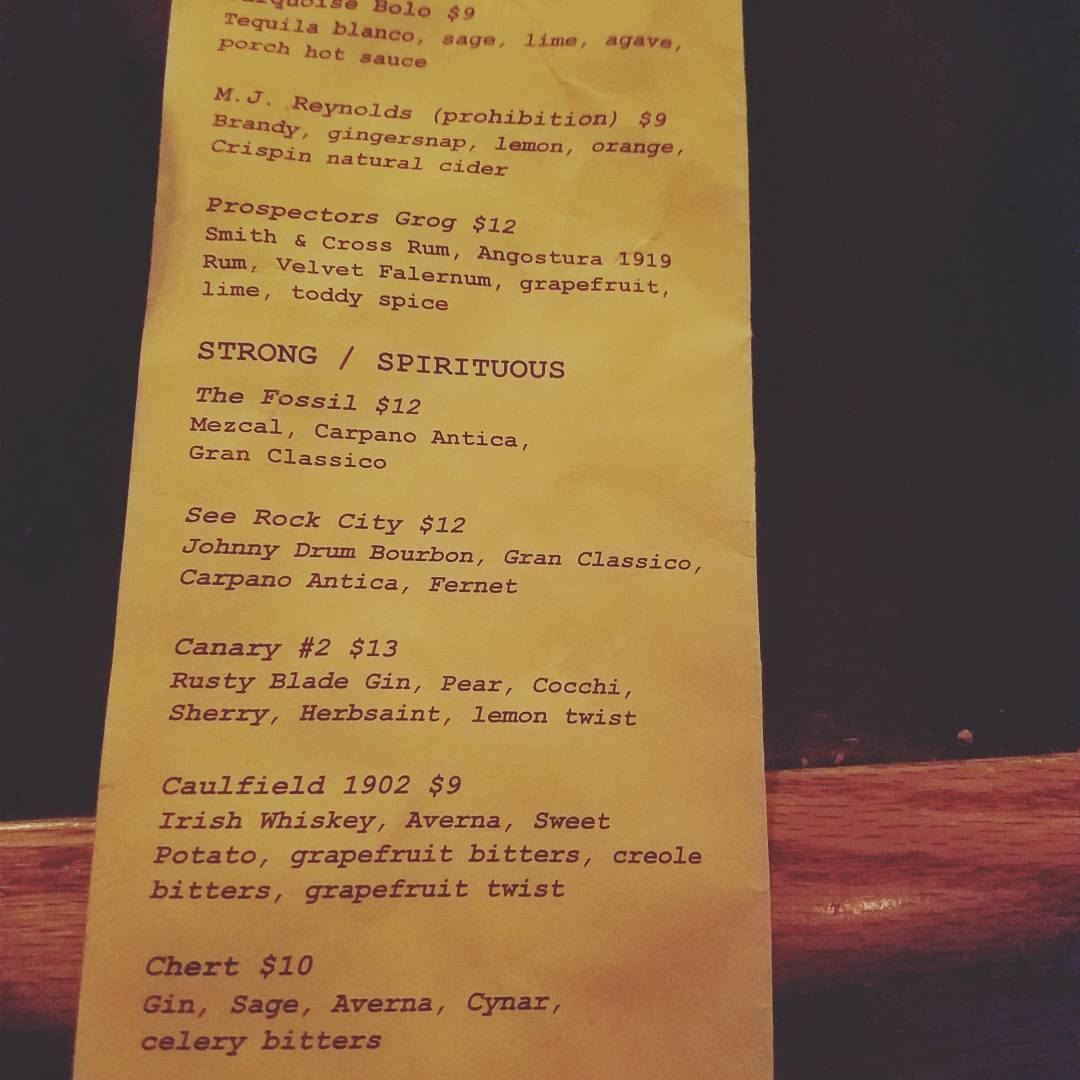 Bolo $9
Tequila blanco, sage, lime, agave,
porch hot sauce
M.J. Reynolds (prohibition) $9
Brandy, gingersnap, lemon, orange,
Crispin natural cider
Prospectors Grog $12
Smith & Cross Rum, Angostura 1919
Rum, Velvet Falernum, grapefruit,
lime, toddy spice
STRONG / SPIRITUOUS
The Fossil $12
Mezcal, Carpano Antica,
Gran Classico
See Rock City $12
Johnny Drum Bourbon, Gran Classico,
Carpano Antica, Fernet
Canary #2 $13
Rusty Blade Gin, Pear, Cocchi,
Sherry, Herbsaint, lemon twist
Caulfield 1902 $9
Irish Whiskey, Averna, Sweet
Potato, grapefruit bitters, creole
bitters, grapefruit twist
Chert $10
Gin, Sage, Averna, Cynar,
celery bitters